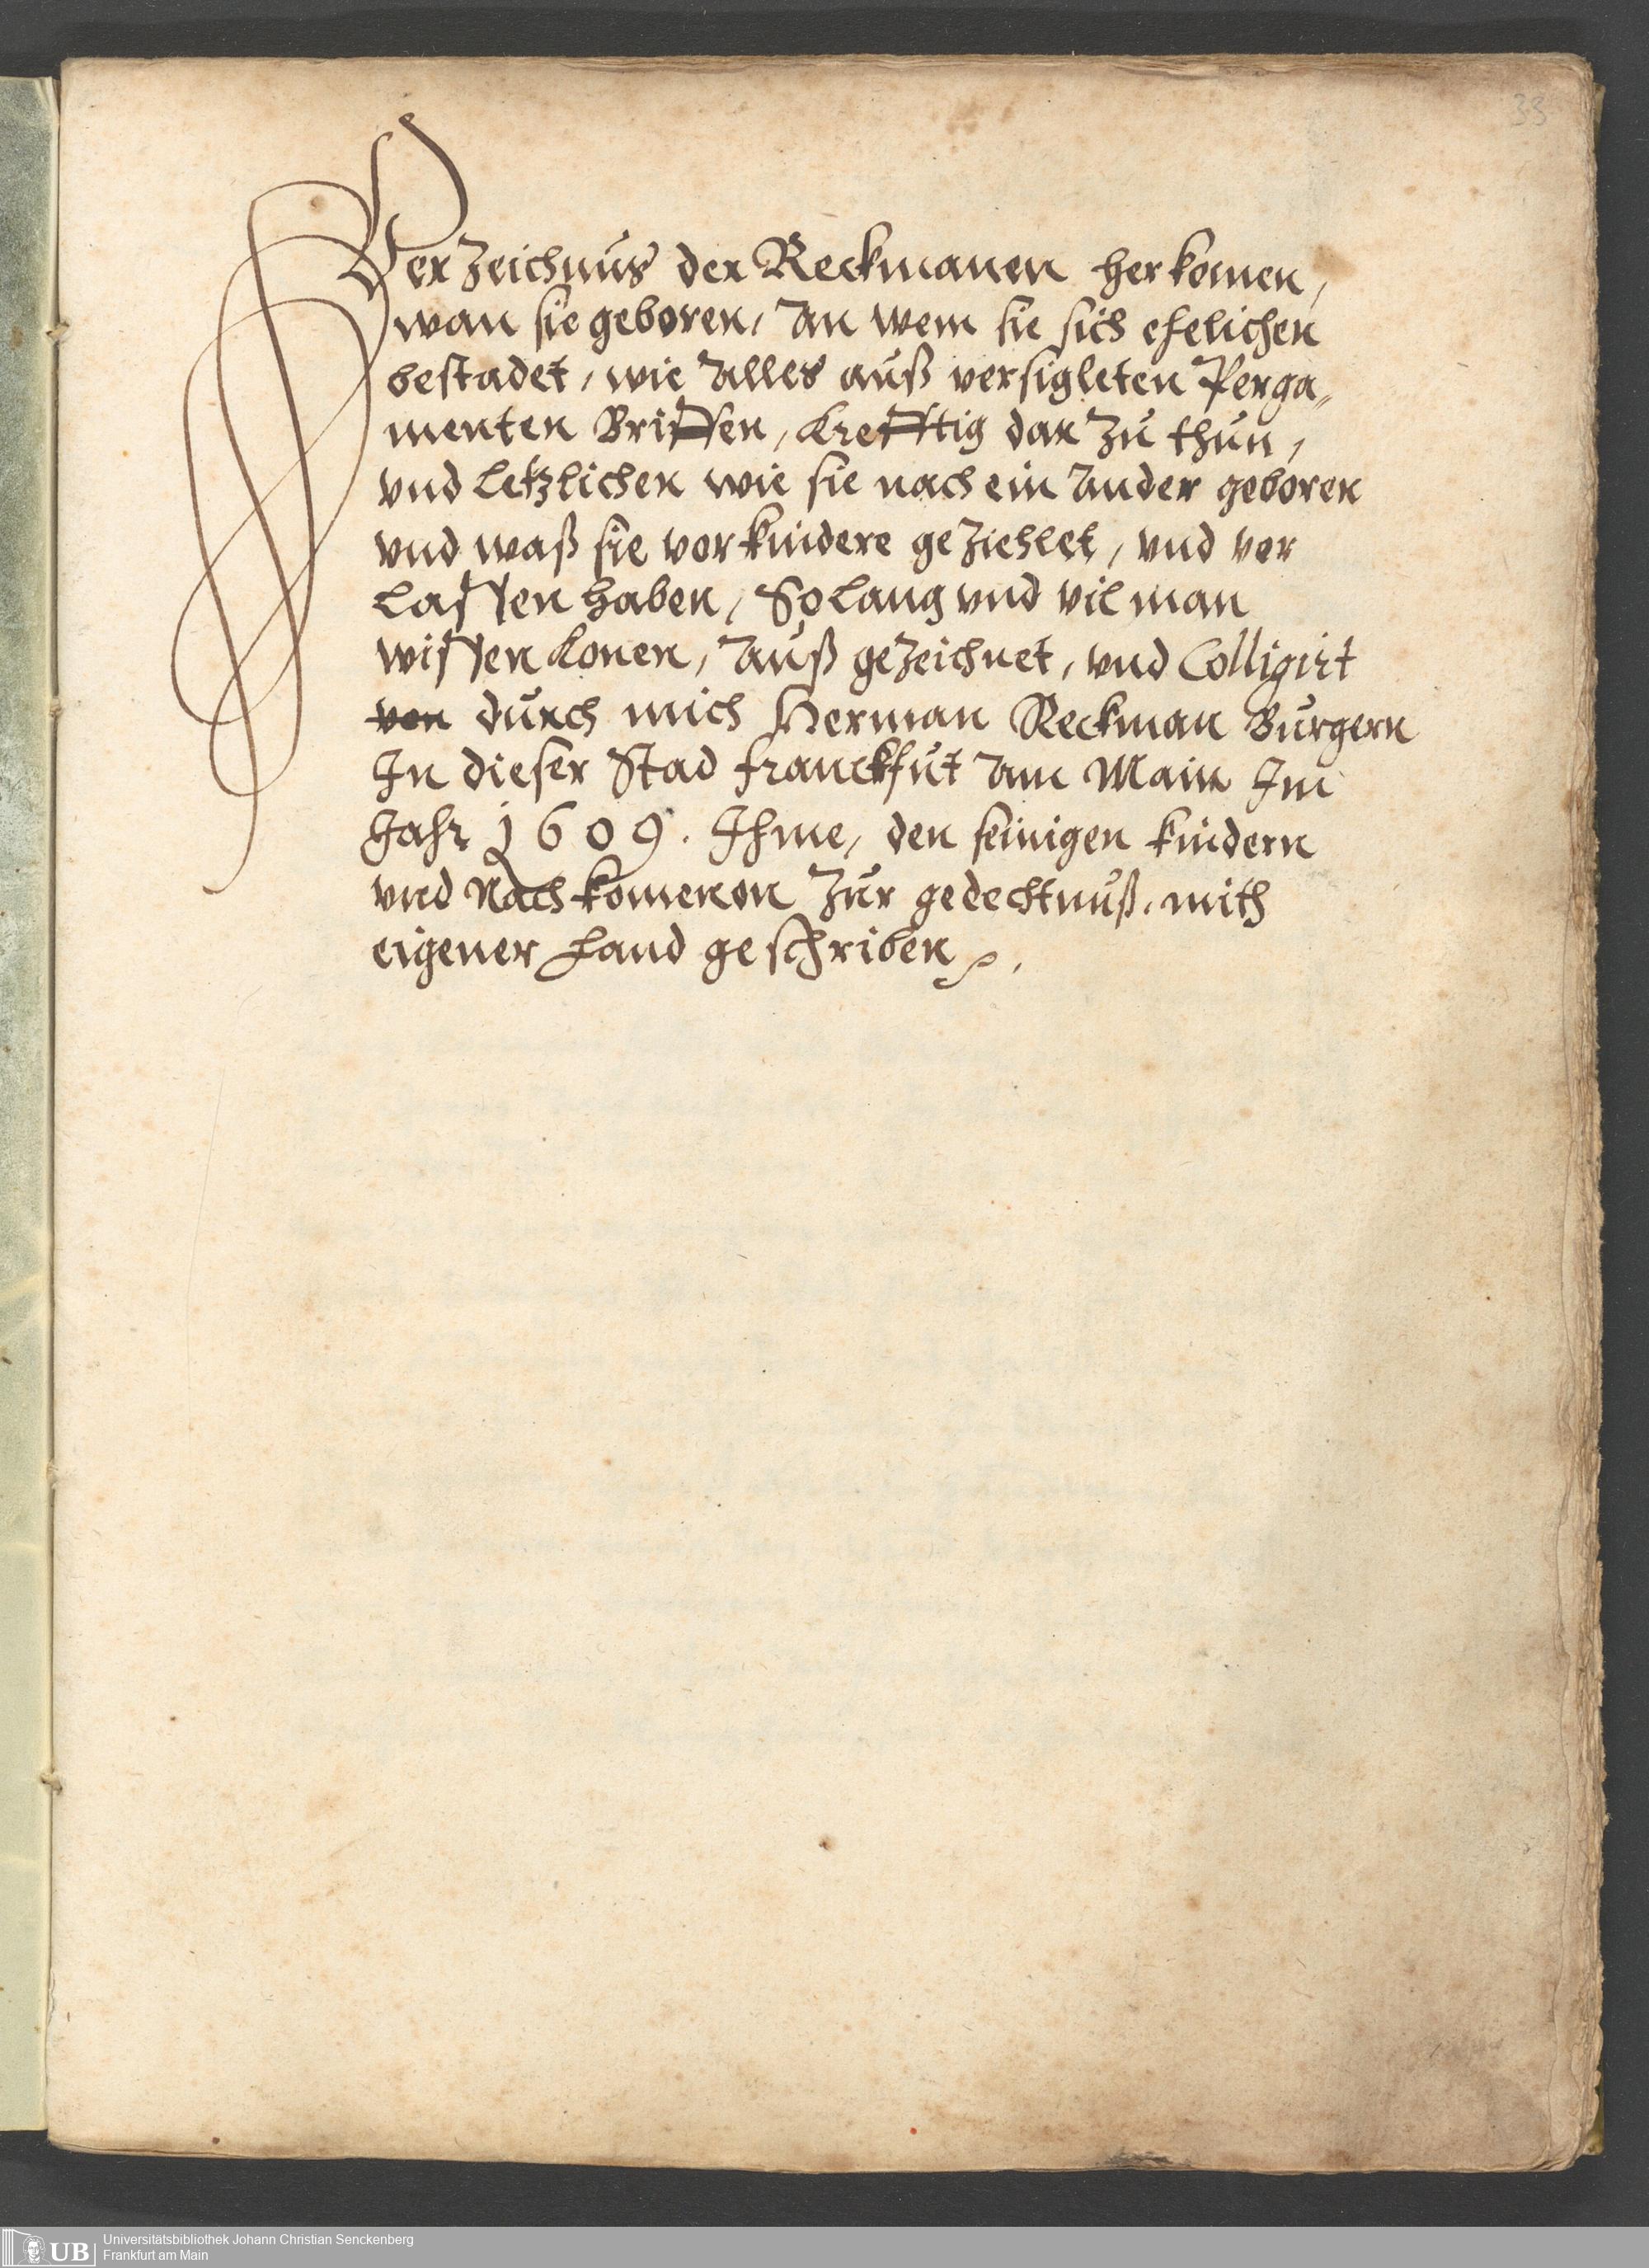 33
Verzeichnus der Reckmanen herkomen,
wan sie geboren, An wem sie sich ehelichen
bestadet, wie Alles auß versigleten Perga„
menten Briffen, krefftig dar zu thun,
vnd letzlichen wie sie nach ein Ander geboren
vnd waß sie vor kindere geziehlet, vnd ver
lassen haben, So lang vnd vil man
wissen konen, Auß gezeichnet, vnd Colligirt
von durch mich Herman Reckman Burgern
In dieser Stad franckfut Am Main Im
Jahr 1609. Ihme, den seinigen kindern
vnd Nachkomenen zur gedechtnuß. mith
eigener Hand geschriben
UB
Universitätsbibliothek Johann Christian Senckenberg
Frankfurt am Main